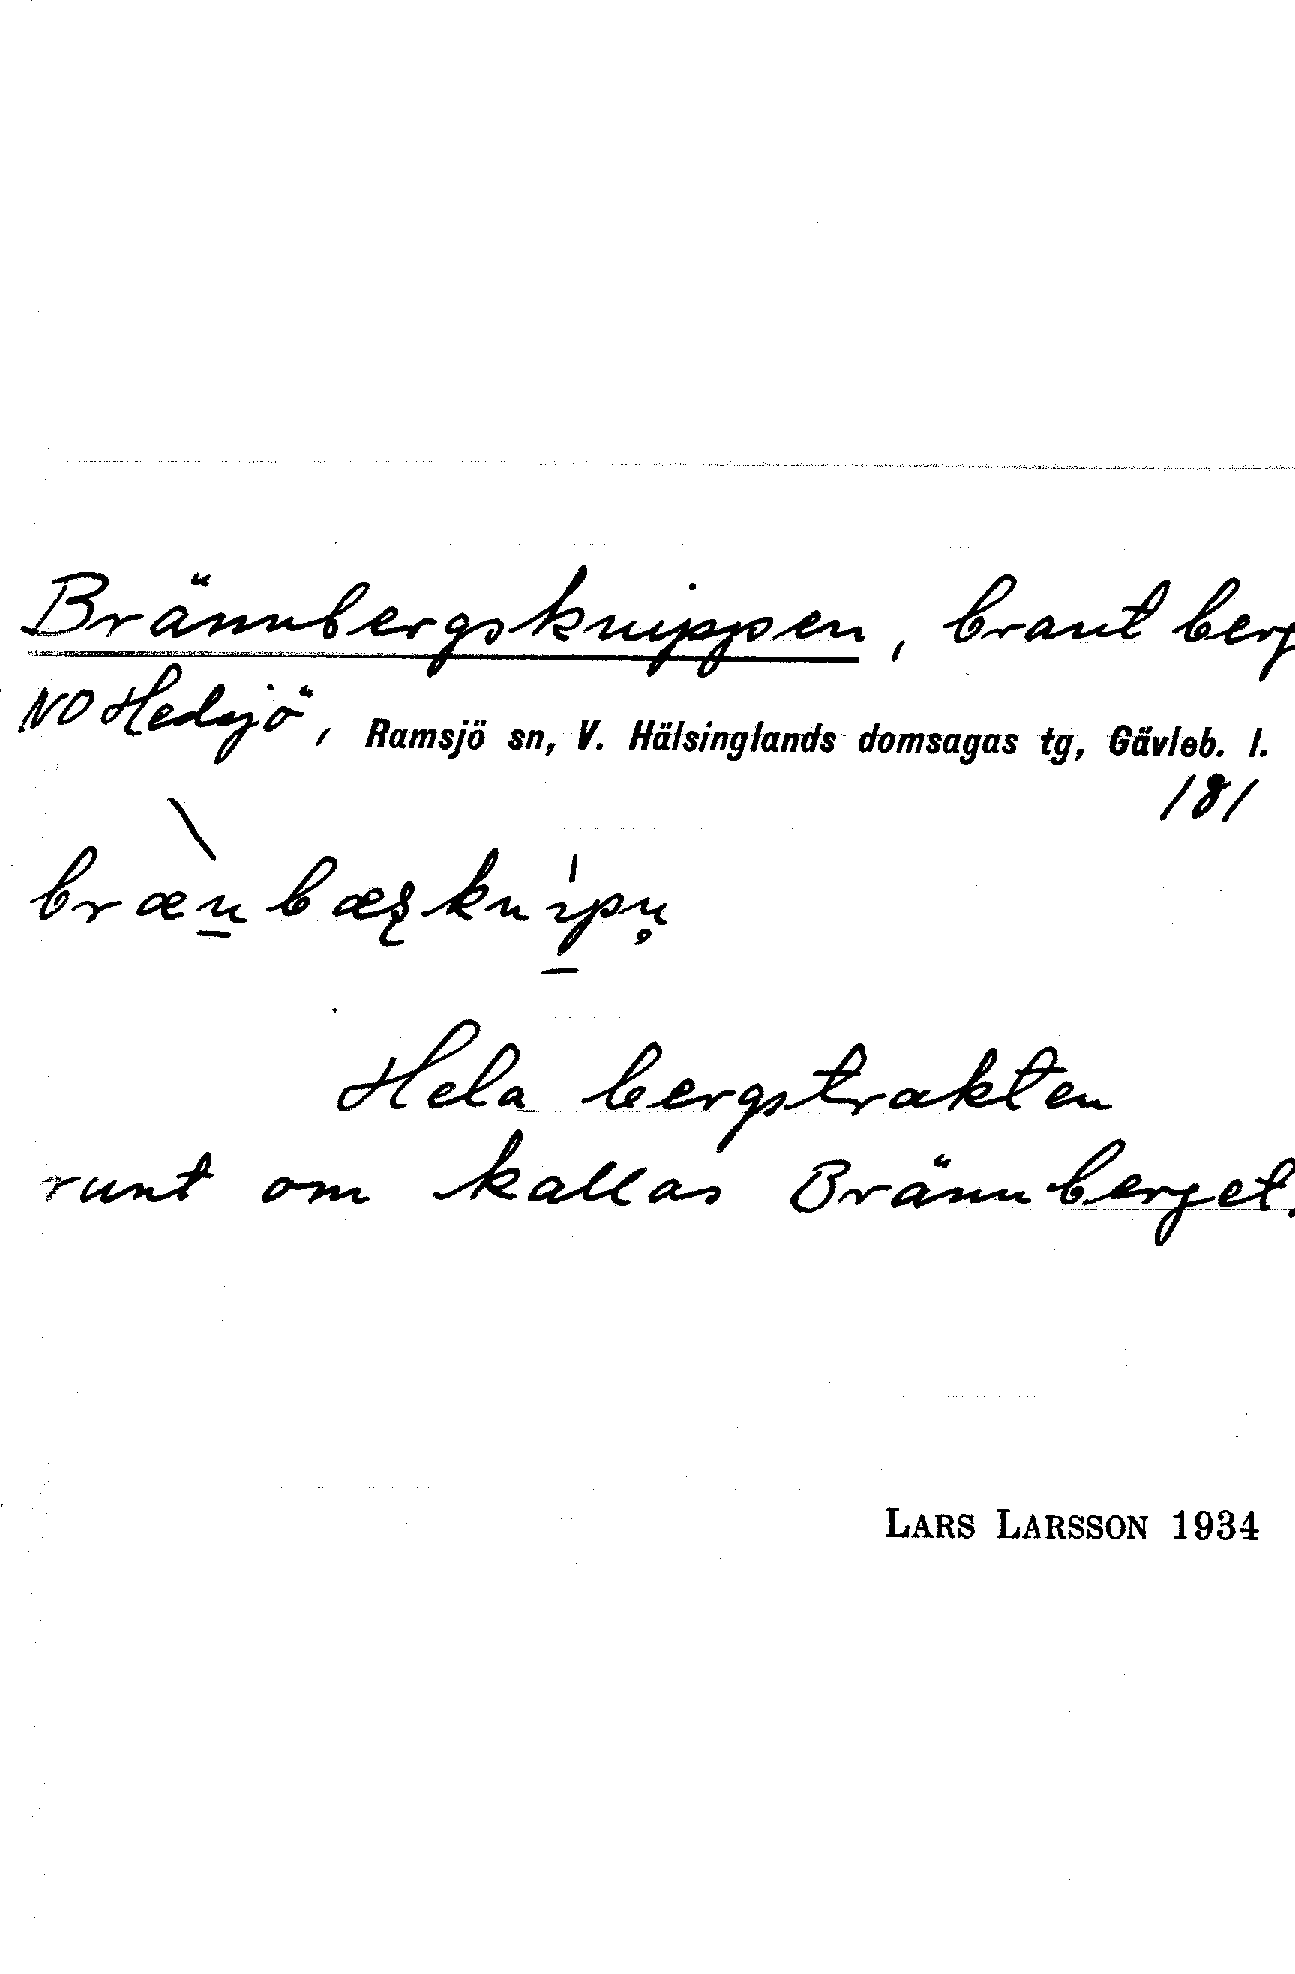 Brännbergsknippen, brant berg
NO Hedsjö, Ramsjö sn, V. Hälsinglands domsagas tg, Gävleb. l.
181
Hela bergstrakten
runt om kallas Brännberget.
LARS LARSSON 1934